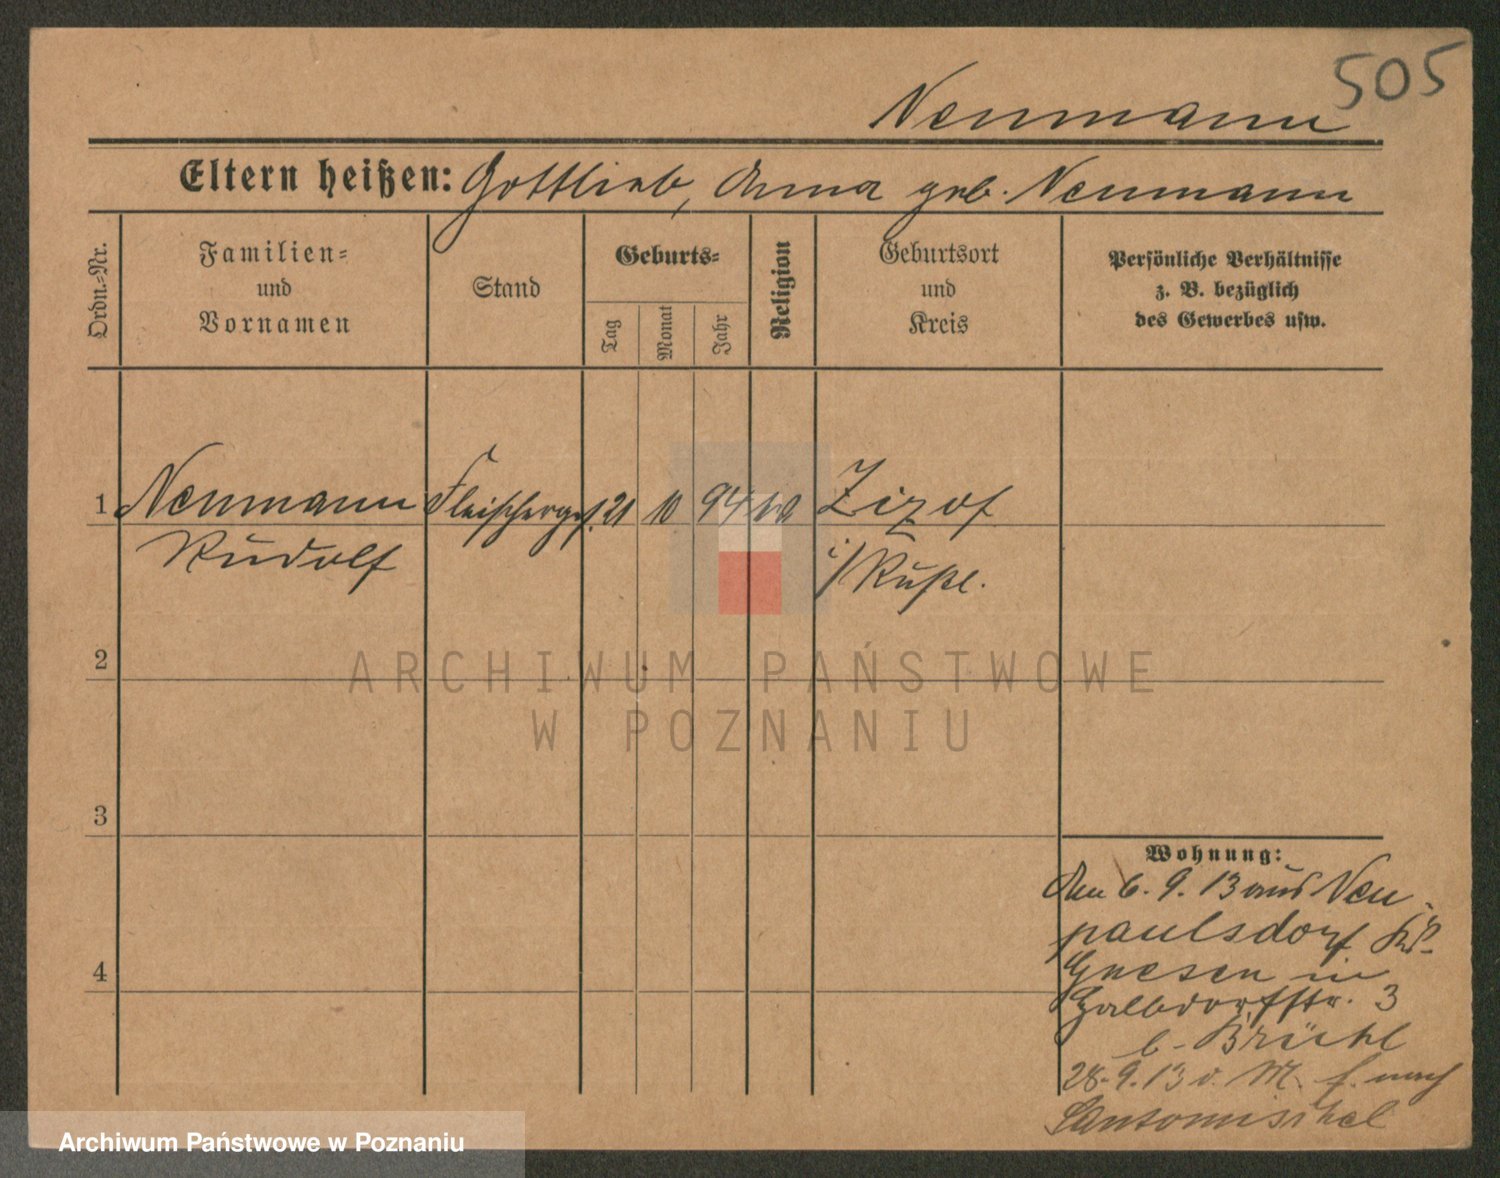 505
Neumann
Eltern heißen: Gottlieb, Anna geb. Neumann
Ordn.-Nr.
Familien-
und
Vornamen
Stand
Geburts-
Tag
Monat
Jahr
Religion
Geburtsort
und
Kreis
Persönliche Verhältnisse
z. B. bezüglich
des Gewerbes usw.
1 Neumann Fleischerges. 21 10 94
Rudolf
i/Rußl.
2
3
4
Wohnung:
Den 6. 9. 13 aus Neu-
paulsdorf Krs.
Gnesen in
Halbdorfstr. 3
b. Brühl
28. 9. 13 v. M. f. nach
Santomischel
ARCHIWUM PAŃSTWOWE
W POZNANIU
Archiwum Państwowe w Poznaniu